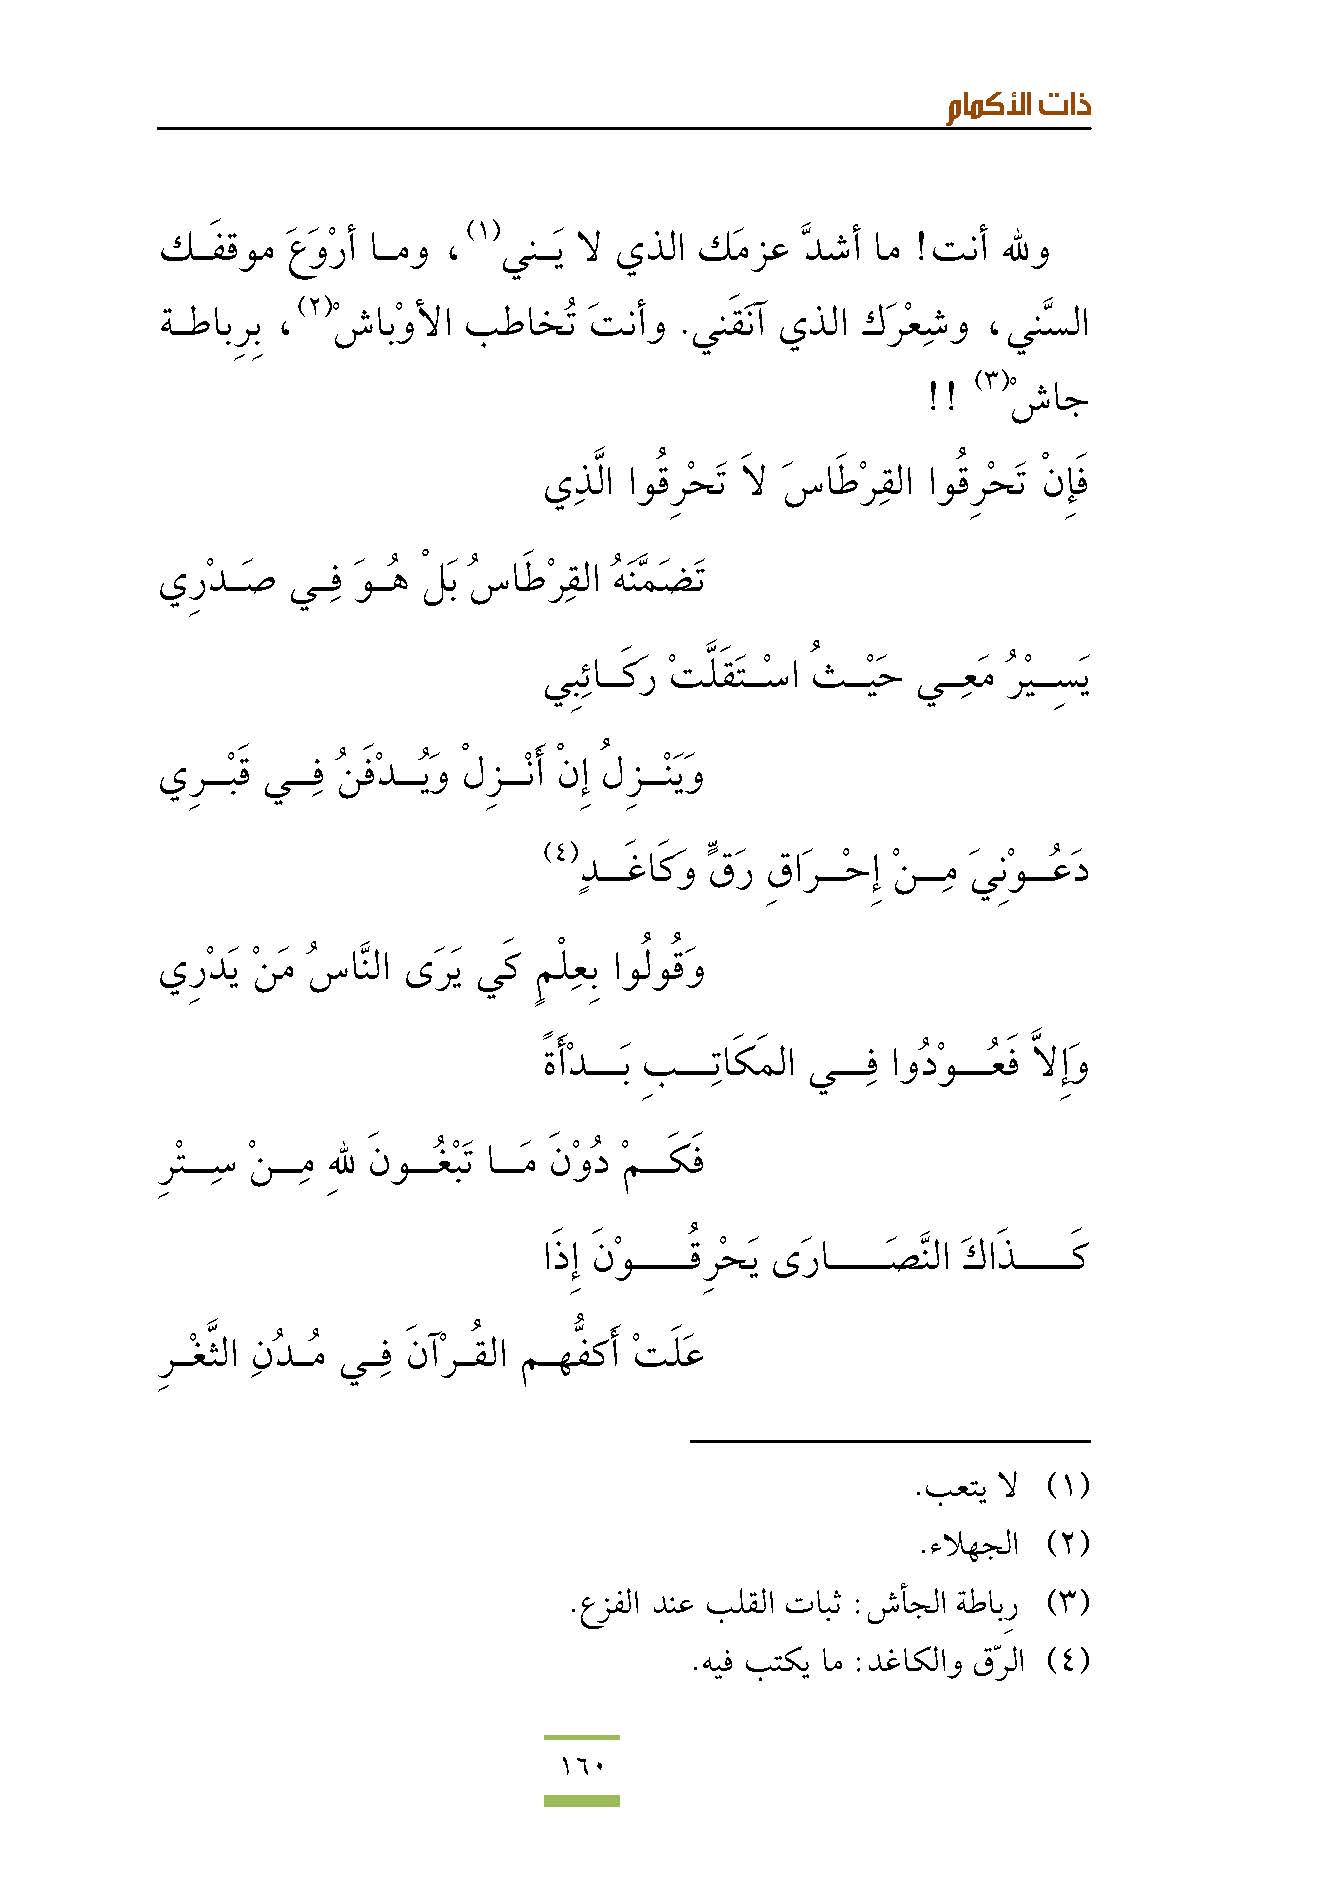 ذات الأكمام
ولله أنت! ما أشدَّ عزمَك الذي لا يَـنـي(١)، ومـا أرْوَعَ موقفَـك
السَّني، وشِعْرَك الذي آنَقَني. وأنتَ تُخاطب الأوْباشْ(٢)، بِرِباطـة
جاشْ(٣) !!
فَإِنْ تَحْرِقُوا القِرْطَاسَ لاَ تَحْرِقُوا الَّذِي
تَضَمَّنَهُ القِرْطَاسُ بَلْ هُـوَ فِـي صَـدْرِي
يَسِـيْرُ مَعِـي حَيْـثُ اسْـتَقَلَّتْ رَكَـائِبِي
وَيَنْـزِلُ إِنْ أَنْـزِلْ وَيُـدْفَنُ فِـي قَبْـرِي
دَعُـوْنِيَ مِـنْ إِحْـرَاقِ رَقٍّ وَكَاغَـدٍ(٤)
وَقُولُوا بِعِلْمٍ كَي يَرَى النَّاسُ مَنْ يَدْرِي
وَإِلاَّ فَعُـوْدُوا فِـي المَكَاتِـبِ بَـدْأَةً
فَكَـمْ دُوْنَ مَـا تَبْغُـونَ لِلهِ مِـنْ سِـتْرِ
كَـذَاكَ النَّصَـارَى يَحْرِقُـوْنَ إِذَا
عَلَتْ أَكفُّهـم القُـرْآنَ فِـي مُـدُنِ الثَّغْـرِ
(١) لا يتعب.
(٢) الجهلاء.
(٣) رِباطة الجأش: ثبات القلب عند الفزع.
(٤) الرّق والكاغد: ما يكتب فيه.
١٦٠